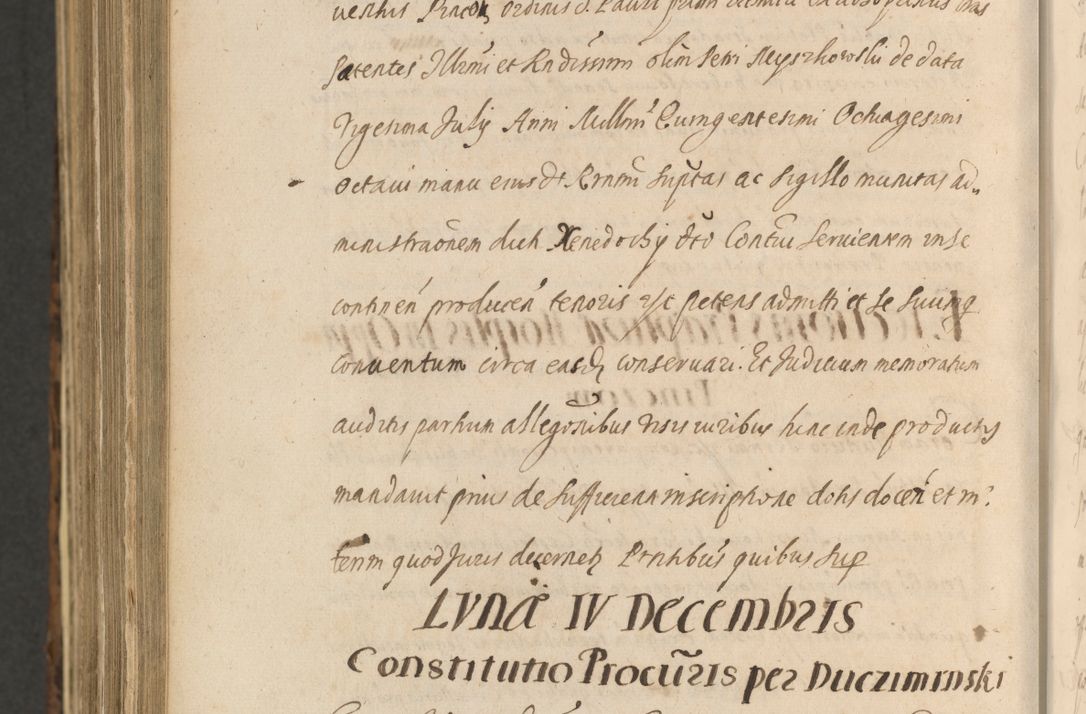 Patentes Illrmi et Rndissimi olim Petri Myszkowski de data
Vigesima July Anni Millmi Quingentesimi Octuagesimi
Octaui manu eius dt Rrnsm supctas ac sigillo munitas ad„
ministraonem dicti Xenedochy dto Contui seruientem in se
continen producen tenoris etc petens admitti et se suumq
conuentum circa easd conseruari. Et Judicium memoratum
auditis partium allegonibus visis iuribus hinc inde productis
mandauit prius de sufficienti inscriptione dotis docen et in
terim quod Juris decernet Prntibus quibus sup
Lunæ IV Decembris
Constitutio Procuris per Duczyminski